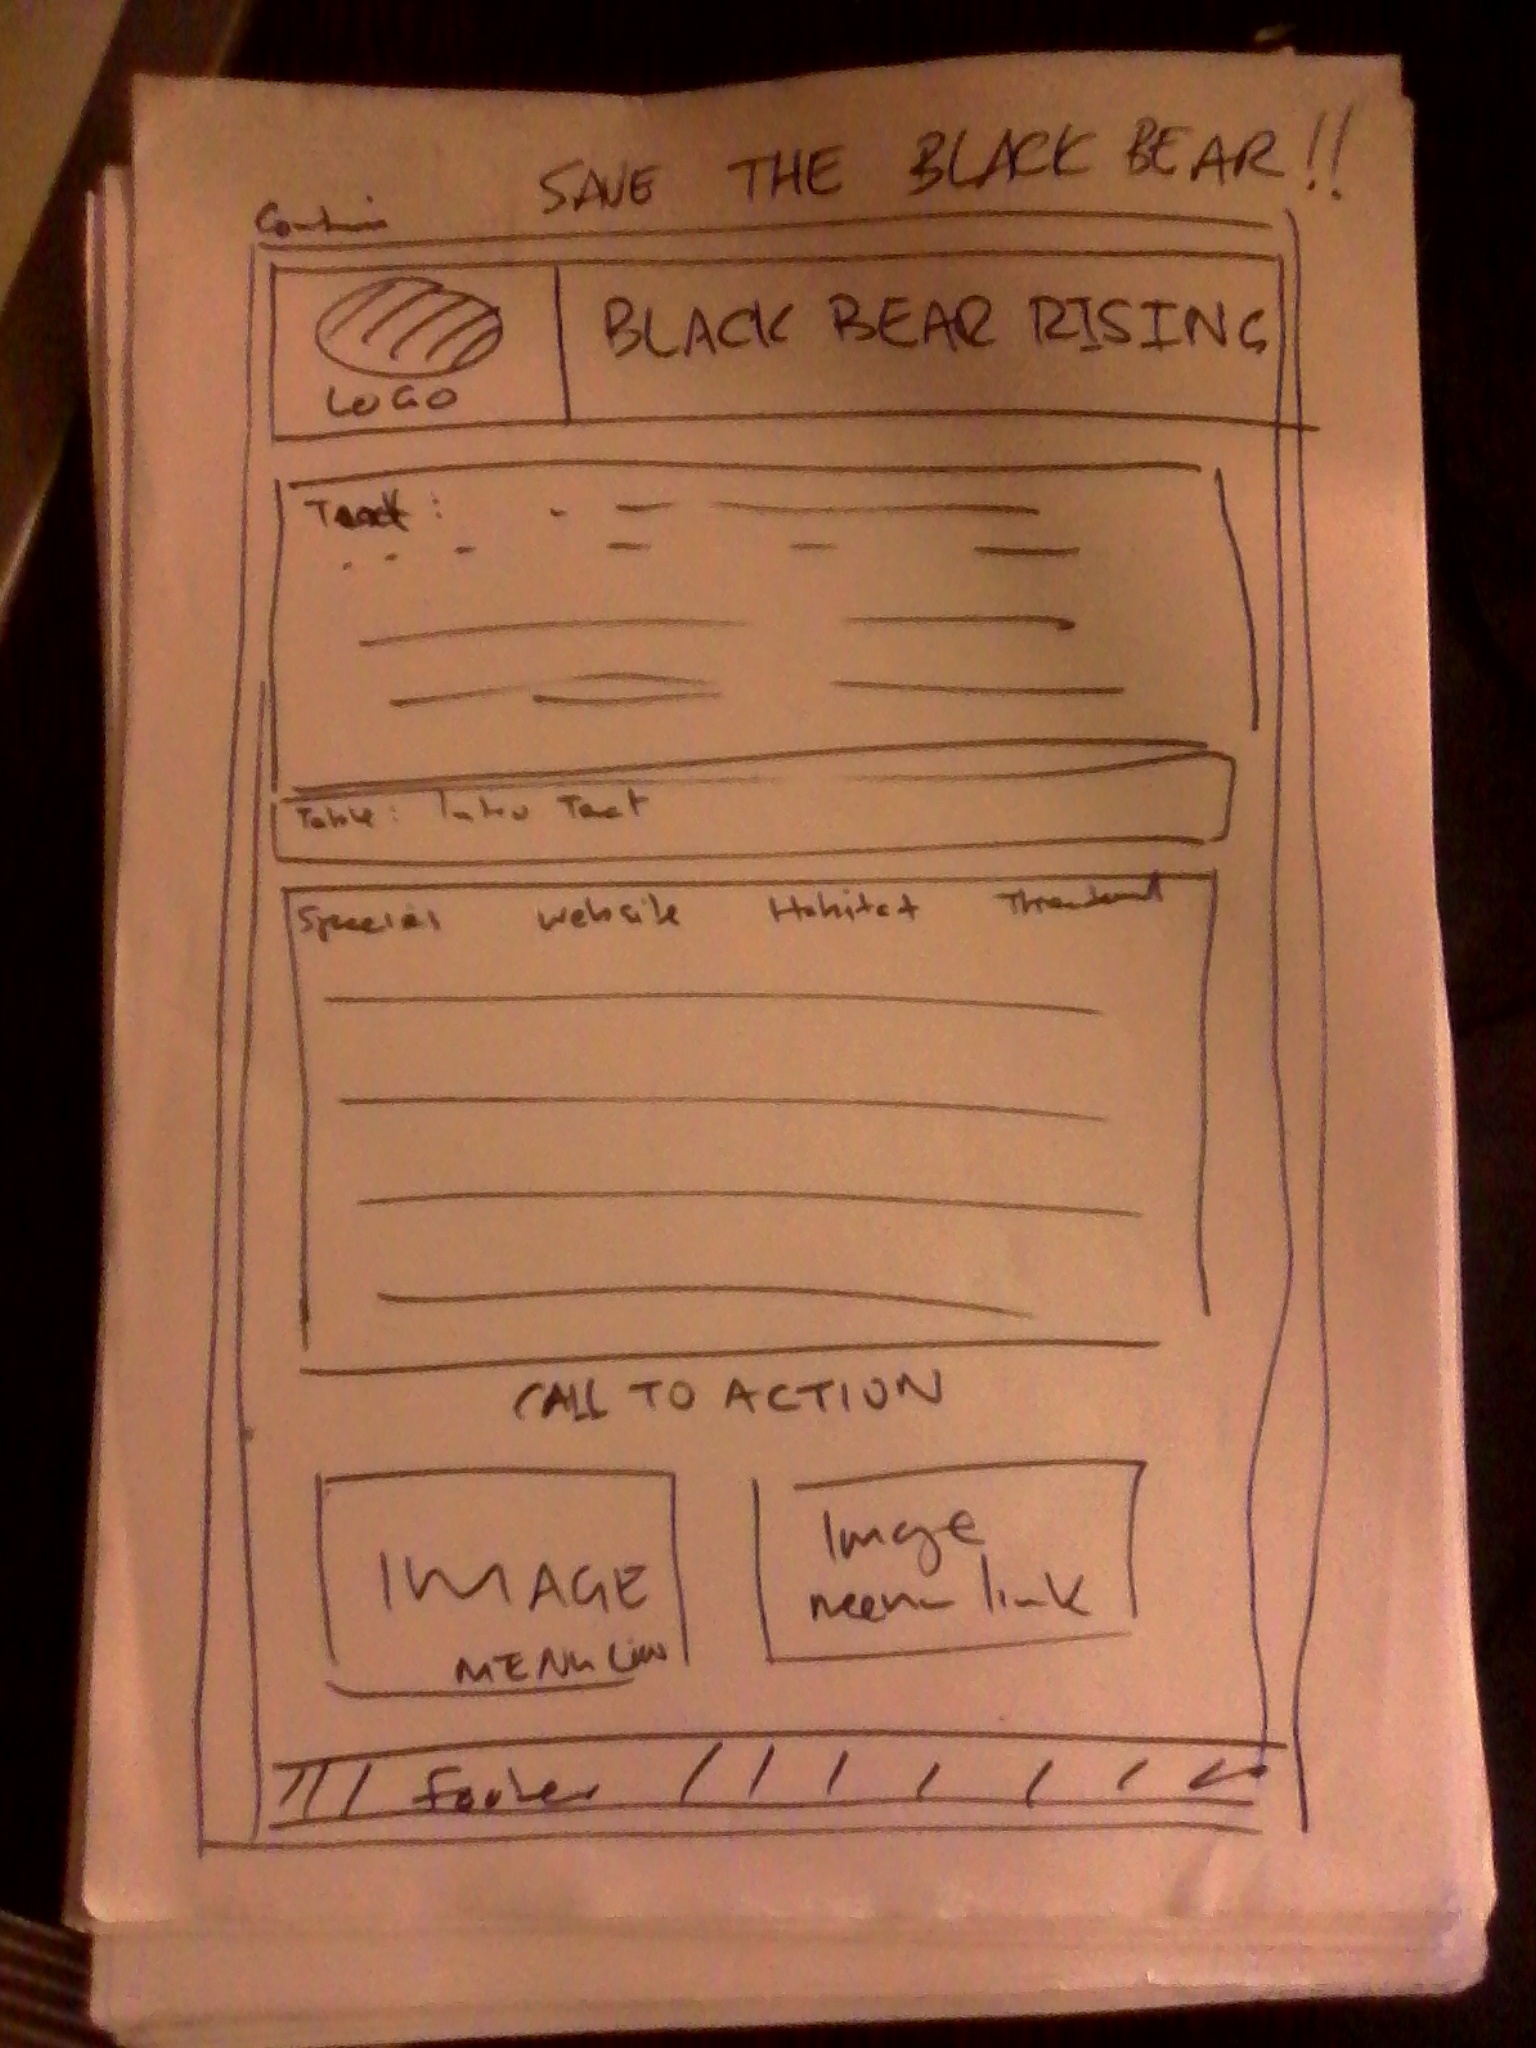 SAVE THE BLACK BEAR!!
LOGO
BLACK BEAR RISING
Text :
Table : Intro Text
Species website Habitat Threatened
CALL TO ACTION
IMAGE
MENU
Image
menu link
footer